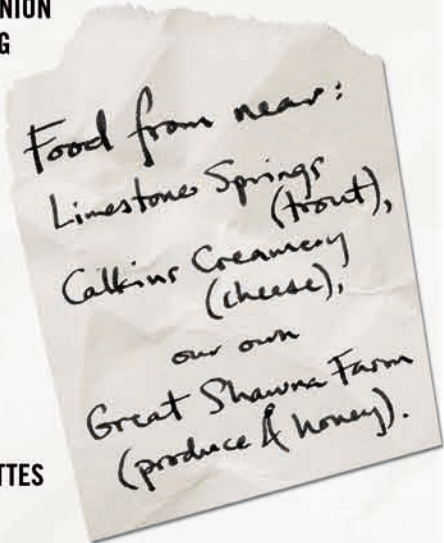 NION
G
Food from near:
Limestone Springs
(trout),
Calkins Creamery
(cheese),
our own
Great Shawna Farm
(produce & honey).
TTES